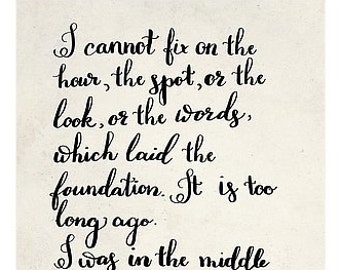 I cannot fix on the
hour, the spot, or the
look, or the words,
which laid the
foundation. It is too
long ago.
I was in the middle